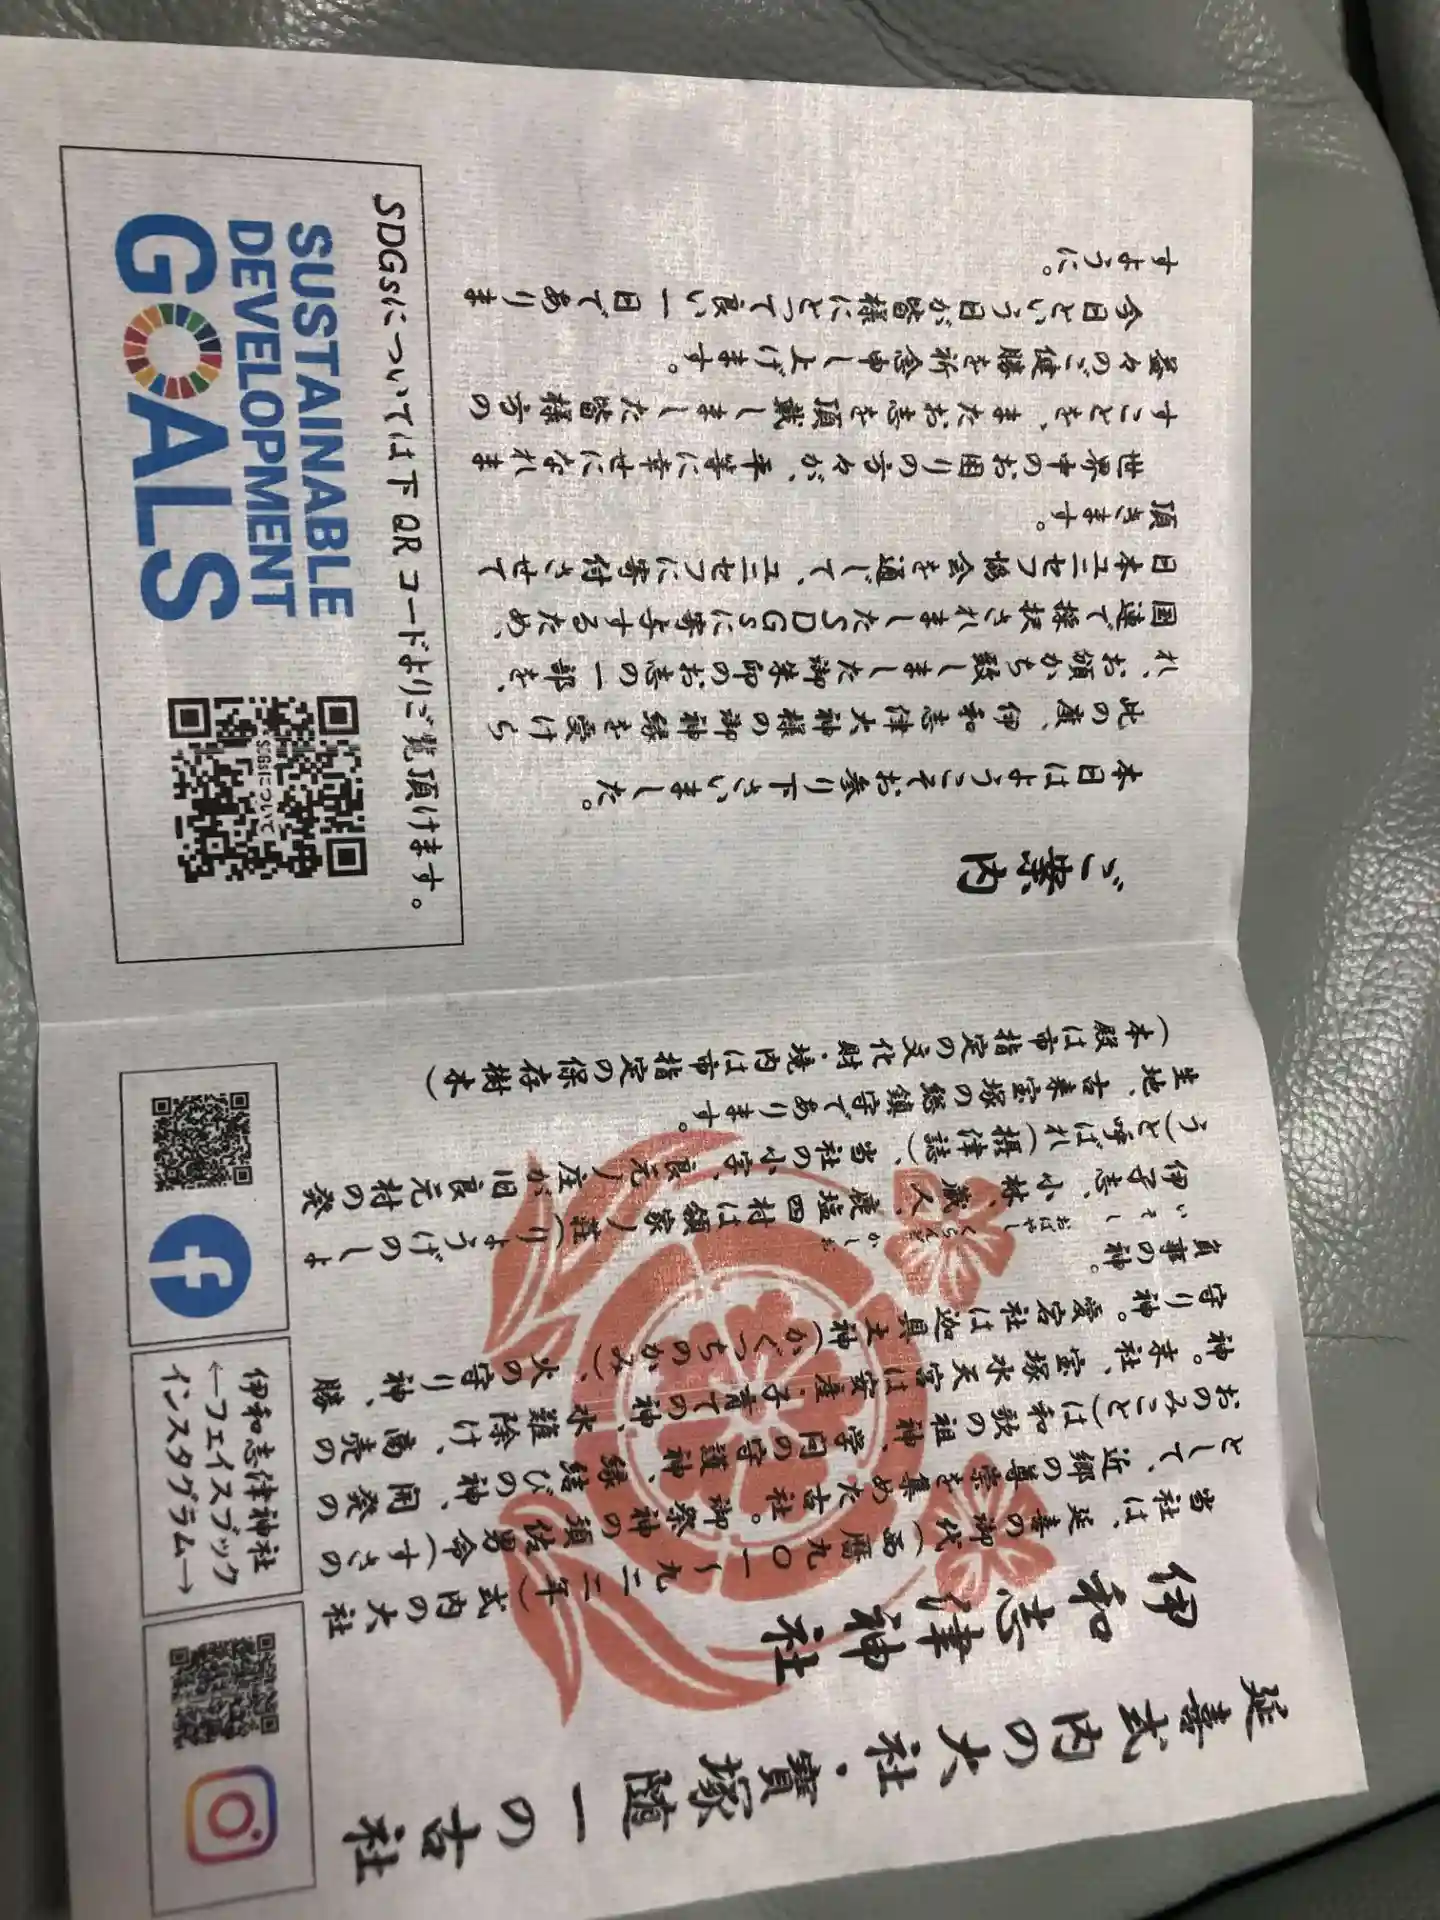 延喜式内の大社・寶塚随一の古社
伊和志津神社
当社は、延喜の御代(西暦九〇一〜九二二年)式内の大社
として、近郷の尊崇を集めた古社。御祭神の須佐男命(すさの
おのみこと)は和歌の祖神、学問の守護神、縁結びの神、開発の
神。末社、宝塚水天宮は安産・子育ての神、水難除け、商売の
守り神。愛宕社は迦具土神(かぐつちのかみ)、火の守り神、勝
負事の神。
いそし おばやし くらんど かしお
伊孑志、小林、蔵人、鹿塩四村は領家ノ荘(りょうげのしょ
う)と呼ばれ(摂津誌)、当社の小字、良元ノ庄が旧良元村の発
生地、古来宝塚の総鎮守であります。
(本殿は市指定の文化財・境内は市指定の保存樹木)
伊和志津神社
←フェイスブック
インスタグラム→
ご案内
本日はようこそお参り下さいました。
此の度、伊和志津大神様の御神縁を受けら
れ、お頒かち致しました御朱印のお志の一部を、
国連で採択されましたSDGsに寄与するため、
日本ユニセフ協会を通じて、ユニセフに寄付させて
頂きます。
世界中のお困りの方々が、平等に幸せになれま
すことを、またお志を頂戴しました皆様方の
益々のご健勝を祈念申し上げます。
今日という日が皆様にとって良い一日でありま
すように。
SDGsについては下QRコードよりご覧頂けます。
SUSTAINABLE
DEVELOPMENT
GOALS
SDGsについて